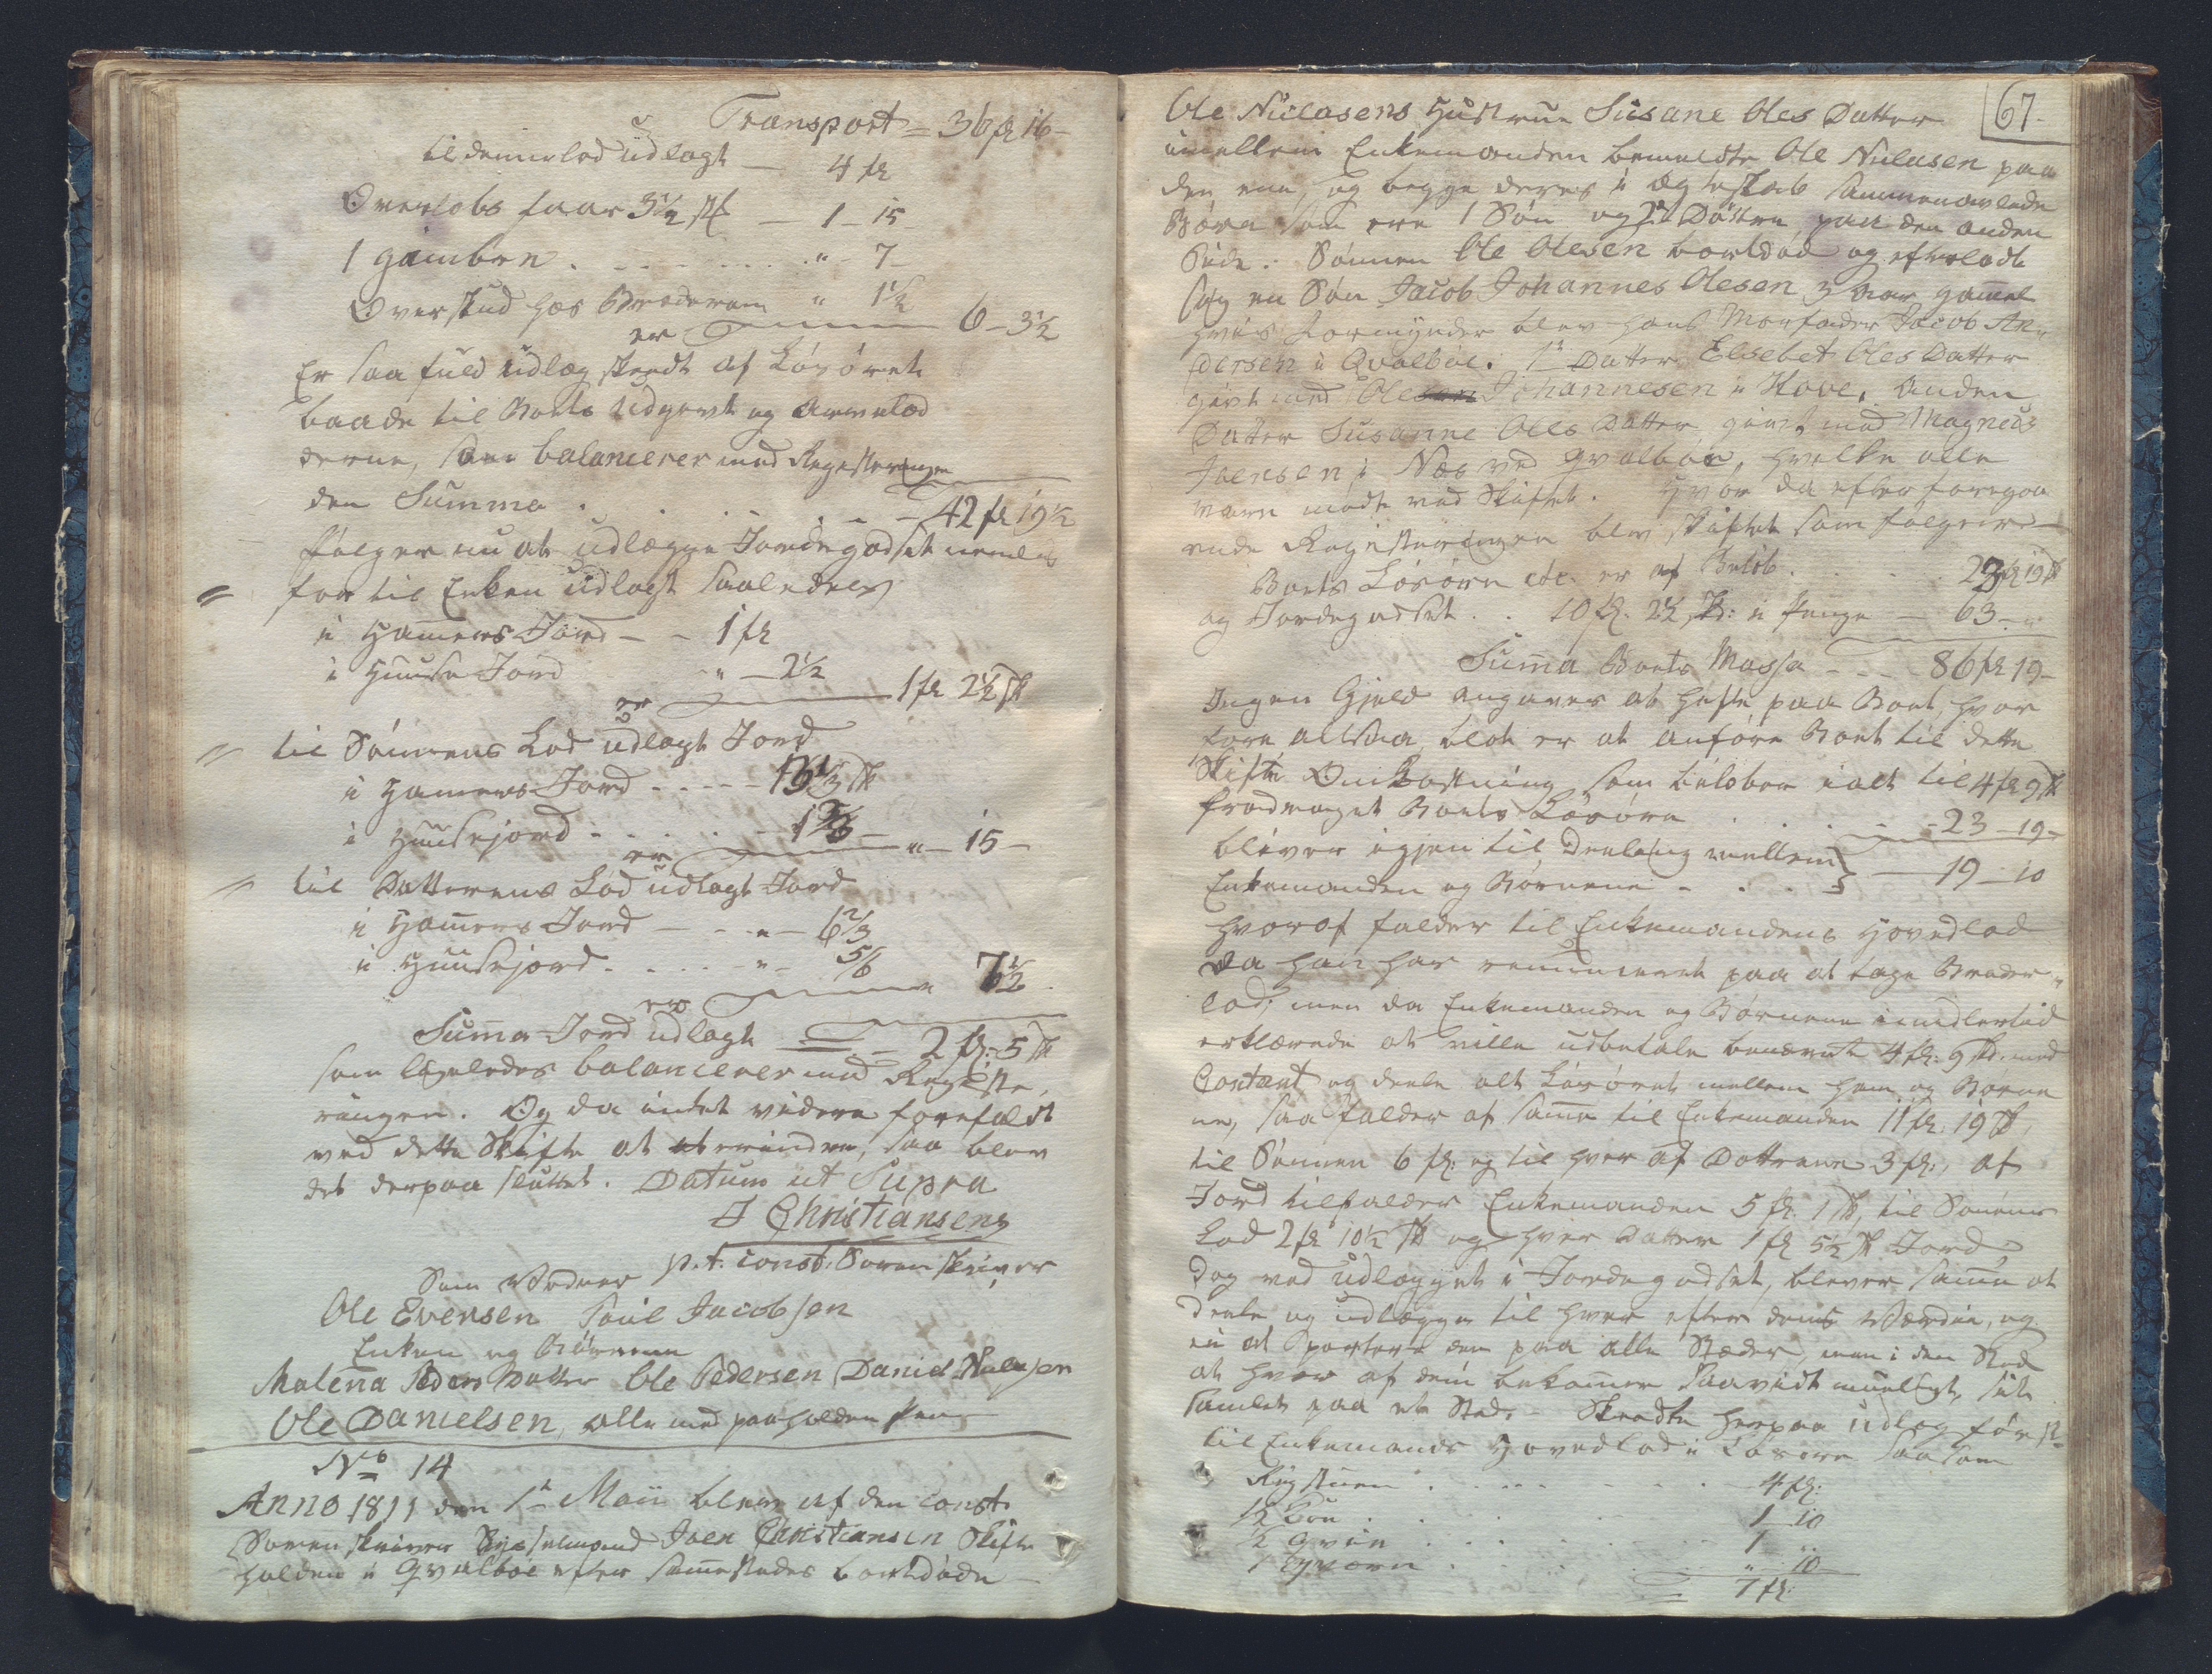 Transport = 36 fl 16 -
til denne lod udlagt — 4 fl
Overløbs faar 3½ st — 1 - 15
1 gimber . . . . . " - 7 -
Overskud hos Broderen " 1½
er — 6 - 3½
Er saa fuld udlæg skeedt af Løsøret
baade til Boets Udgivt og Arvelod
derne, som balancerer med Registeringen
den Summa . . . . . - 42 fl 19½
følger nu at udlægge Jordegodset nemlig
for til Enken udlagt saaledes
i Hamers Jord - - 1 fl
i Huuse Jord " - 2½
er — 1 fl 2½ sk
til Sønnens Lod udlagt Jord
i Hamers Jord - - - - 13⅓ sk
i Huusejord - - - - 1⅔ -
er — " - 15 -
til Datterens Lod udlagt Jord
i Hamers Jord - - " - 6⅔
i Huusejord . . . . " - 5/6
er — " 7½
Summa Jord udlagt — 2 fl: 5 sk
som ligeledes balancerer med Registe,
ringen. Og da intet videre forefaldt
ved dette Skifte at erindre, saa blev
det derpaa sluttet. Datum ut Supra
J Christiansen
p. t. const. Sorenskriver
Som Vidner
Ole Evensen Poul Jacobsen
Enken og Børnene
Malena Peders Datter Ole Pedersen Daniel
Ole Danielsen, alle med paaholden Pen
No 14
Anno 1811 den 1te Maii blev af den const.
Sorenskriver Sysselmand Joen Christiansen Skifte
holden i Qvalböe efter sammestedes bortdøde
67.
Ole Niclasens Hustrue Susane Oles Datter
imellem Enkemanden bemeldte Ole Niclasen paa
den ene, og begge deres i Ægteskab sammenavlede
Børn som ere 1 Søn og 2de Døttre, paa den anden
Side. Sønnen Ole Olesen bortdød og efterladt
sig en Søn Jacob Johannes Olesen 3 Aar gamel
hvis Formynder blev hans Morfader Jacob An-
dersen i Qvalböe. 1te Datter Elsebet Oles Datter
givt med Ole Johannesen i Hove. Anden
Datter Susanne Oles Datter givt med Magnus
Joensen i Næs ved Qvalböe, hvilke alle
vare mødte ved Skiftet. Hvor da efter foregaa
ende Registeringen blev skiftet som følger
Boets Løsøre etc. er af Beløb . . 23 fl 19 sk
og Jordegodset . . 10 fl. 2½ sk: i penge — 63 - "
Summa Boets Massa - - - 86 fl 19 -
Ingen Gjeld angives at hefte paa Boet, hvor
fore altsaa blot er at anføre Boet til dette
Skifte Omkostning som beløber i alt til 4 fl 9 sk
fradraget Boets Løsøre . . . . - 23 - 19 -
bliver igjen til Deeling mellem
Enkemanden og Børnene - . . . — 19 - 10
hvoraf falder til Enkemandens Hovedlod
da han har renunceret paa at tage Broder-
lod; men da Enkemanden og Børnene imidlertid
erklærede at ville udbetale benævnte 4 fl: 9 sk: med
Contant og deele alt Løsøret mellem ham og Børne
ne, saa falder af samme til Enkemanden 11 fl. 19 sk,
til Sønnen 6 fl: og til hver af Døttrene 3 fl:, af
Jord tilfalder Enkemanden 5 fl: 1 sk, til Sønnens
Lod 2 fl 10½ sk og hver Datter 1 fl 5½ sk Jord,
Dog ved udlægget i Jordegodset, bliver samme at
deele og udlægge til hver efter dens Værdie, og
ei at partere den paa alle Stæder, men i den Sted
at hver af dem bekommer saavidt mueligt, sit
samlet paa et Sted. Skeedte herpaa udlæg først
til Enkemands Hovedlod i Løsøre saasom
Røgstuen . . . . . . . 4 fl:
½ . . . . . . . 1 - 10
½ . . . . . . . 1 "
1 Qværn . . . . . " - 10 -
7 fl: